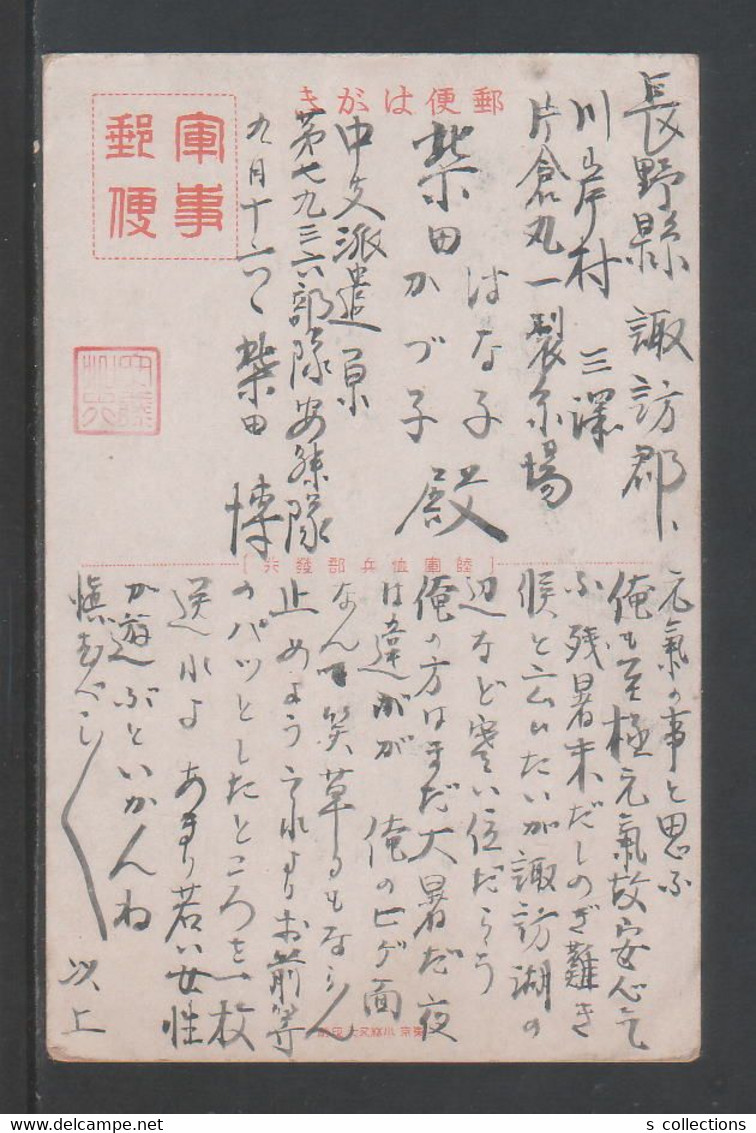 郵便はがき
軍事
郵便
長野縣 諏訪郡、
川岸村 三澤
片倉丸一製糸場
柴田 はな子
かづ子 殿
中支派遣
第七九三六部隊安藤隊
九月十六 柴田 博
[陸軍恤兵部發行]
元氣の事と思ふ
俺も至極元氣故安心して
残暑未だしのぎ難き
候と云ひたいが諏訪湖の
辺など寒い位だらう
俺の方はまだ大暑だ夜
は違ふが 俺のヒゲ面
なんて笑草にもならん
止めよう それよりお前等
のパツとしたところを一枚
送れよ あまり若い女性
が遊ぶといかんね
慎むべし
以上
s collections